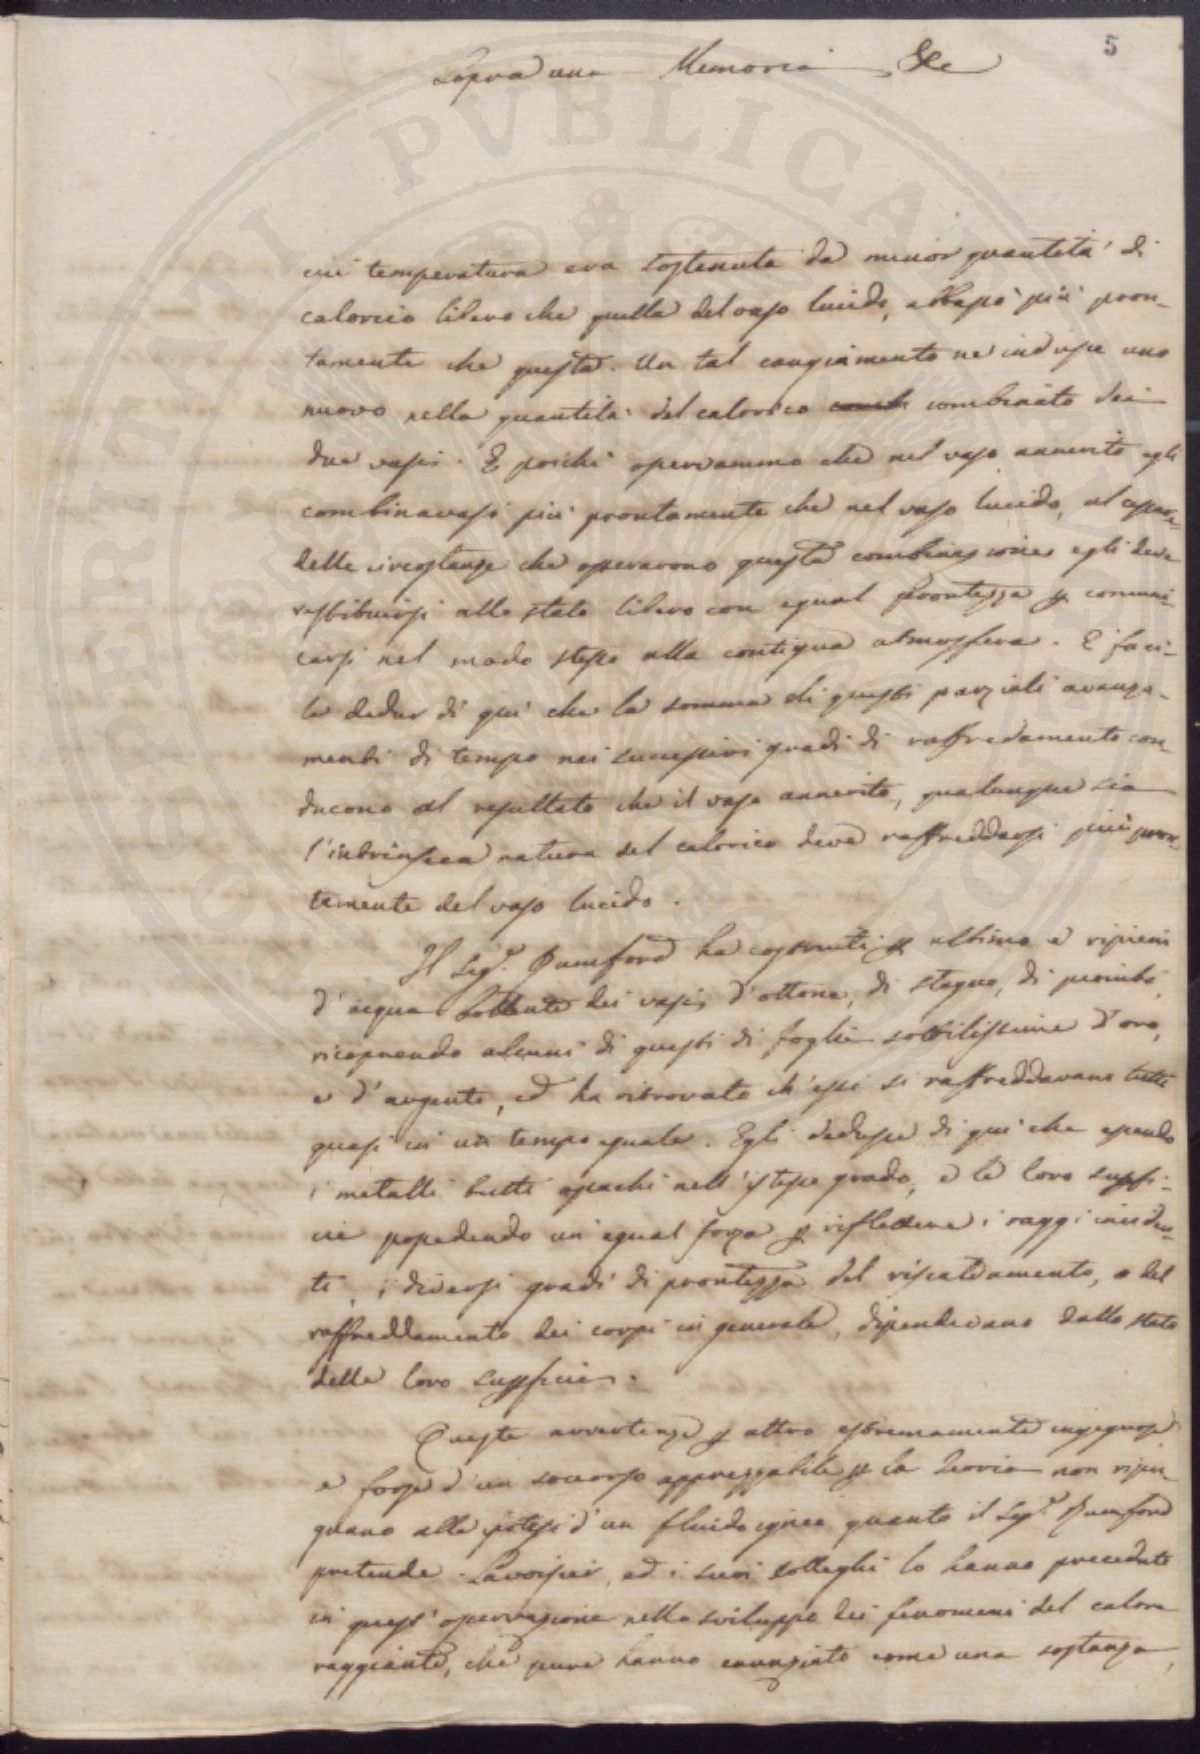 5
Sopra una Memoria &e
cui temperatura era sostenuta da minor quantità di
calorico libero che quella del vaso lucido, abbassò più pron-
tamente che questa. Un tal cangiamento ne indusse uno
nuovo nella quantità del calorico combinato dei
due vasi. E poichè osservammo che nel vaso annerito egli
combinavasi più prontamente che nel vaso lucido, al cessare
delle circostanze che operarono questa combinazione egli deve
restituirsi allo stato libero con egual prontezza p comuni-
carsi nel modo stesso alla contigua atmosfera. È faci-
le dedur di quì che la somma di questi parziali avanza-
menti di tempo nei successivi gradi di raffredamento con-
ducono al resultato che il vaso annerito, qualunque sia
l'intrinseca natura del calorico deve raffreddarsi più pron-
tamente del vaso lucido.
Il Sig.r Rumford ha costruiti p ultimo e ripieni
d'acqua bollente dei vasi d'ottone, di stagno, di piombo,
ricoprendo alcuni di questi di foglie sottilissime d'oro,
e d'argento, ed ha ritrovato ch'essi si raffreddavano tutti
quasi in un tempo eguale. Egli dedusse di quì che essendo
i metalli tutti opachi nell'istesso grado, e le loro suppfi-
cie possedendo un'egual forza p riflettere i raggi inciden-
ti, i diversi gradi di prontezza del riscaldamento, o del
raffreddamento dei corpi in generale, dipendevano dallo stato
delle loro suppficie.
Queste avvertenze p altro estremamente ingegnose
e forse d'un soccorso apprezzabile p la teoria non ripu-
gnano alla ipotesi d'un fluido igneo quanto il Sig.r Rumford
pretende. Lavoisier, ed i suoi colleghi lo hanno preceduto
in quest'osservazione nello sviluppo dei fenomeni del calore
raggiante, che pure hanno enunziato come una sostanza,
SPERITATI PVBLICAE